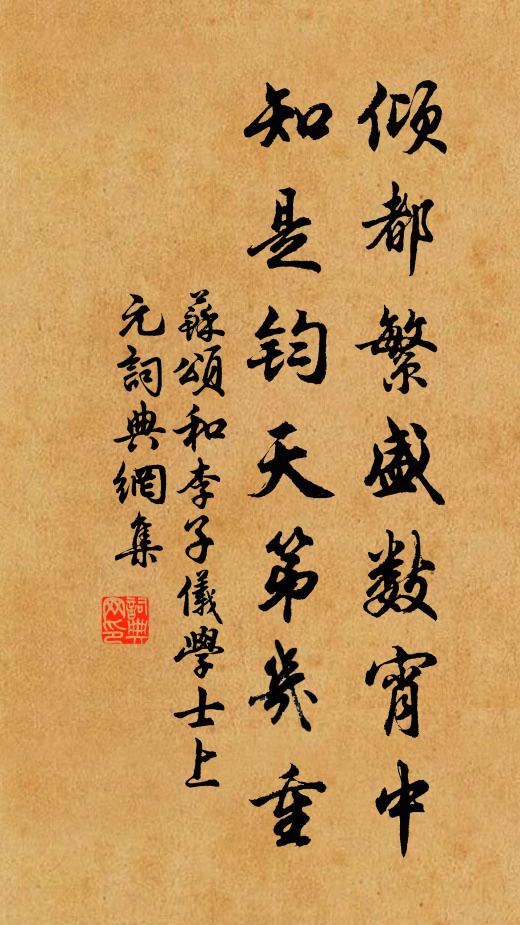 傾都繁盛數宵中
知是鈞天第幾重
蘇頌和李子儀學士上
元詞典網集
詞典網印